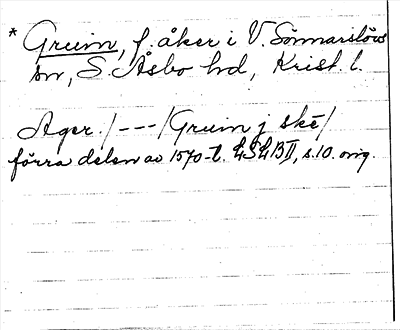 * Gruin, f. åker i V. Sönnarslövs
sn, S. Åsbo hd, Krist. l.
Ager /---/ Gruin j ske /
förra delen av 1570-t. LSLB II, s. 10. orig.